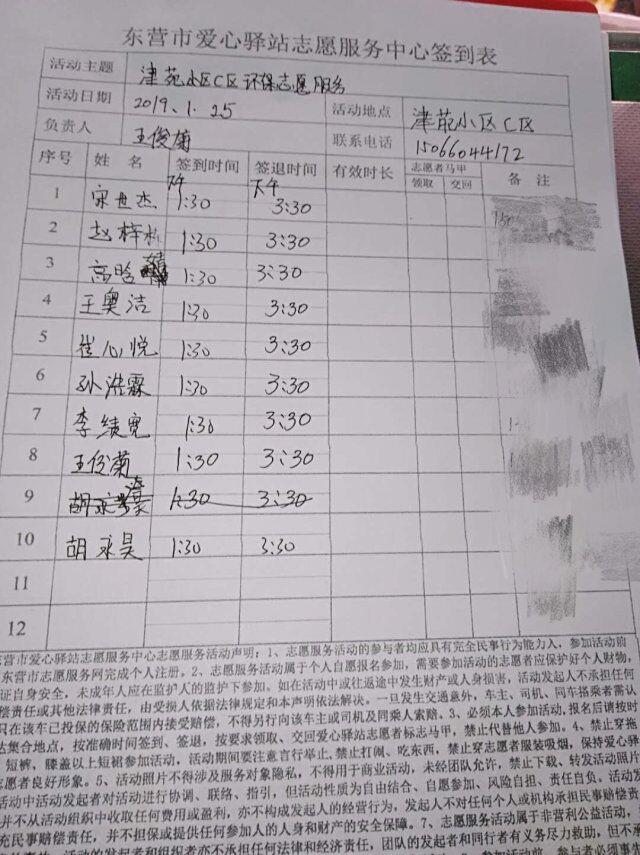 东营市爱心驿站志愿服务中心签到表
活动主题 津苑小区C区环保志愿服务
活动日期 2019.1.25 活动地点 津苑小区C区
负责人 王俊菊 联系电话 15066044172
序号 姓名 签到时间 签退时间 有效时长 志愿者马甲 备注
下午 下午 领取 交回
1 宋世杰 1:30 3:30
2 赵梓彬 1:30 3:30
3 高晗 1:30 3:30
4 王奥洁 1:30 3:30
5 崔心悦 1:30 3:30
6 孙浩霖 1:30 3:30
7 李绩宽 1:30 3:30
8 王俊菊 1:30 3:30
9 胡永 1:30 3:30
10 胡永昊 1:30 3:30
11
12
东营市爱心驿站志愿服务中心志愿服务活动声明：1、志愿服务活动的参与者均应具有完全民事行为能力人，参加活动前
东营市志愿服务网完成个人注册。2、志愿服务活动属于个人自愿报名参加，需要参加活动的志愿者应保护好个人财物，
证自身安全，未成年人应在监护人的监护下参加。如在活动中或往返途中发生财产或人身损害，活动发起人不承担任何
偿责任或其他法律责任，由受损人依据法律规定和本声明依法解决。一旦发生交通意外，车主、司机、同车搭乘者需认
只在该车已投保的保险范围内接受赔偿，不得另行向该车主或司机及同乘人索赔。3、必须本人参加活动，报名后请按时
达集合地点，按准确时间签到、签退，按要求领取、交回爱心驿站志愿者标志马甲，禁止代替他人参加。4、禁止穿拖
短裤、膝盖以上短裙参加活动，活动期间要注意言行举止，禁止打闹、吃东西，禁止穿志愿者服装吸烟，保持爱心驿
志愿者良好形象。5、活动照片不得涉及服务对象隐私，不得用于商业活动，未经团队允许，禁止下载、转发活动照片
活动中活动发起者对活动进行协调、联络、指引，但活动性质为自由结合、自愿参加、风险自担、责任自负。活动发
并不从活动组织中收取任何费用或盈利，亦不构成发起人的经营行为，发起人不对任何个人或机构承担民事赔偿责
充民事赔偿责任，并不担保或提供任何参加人的人身和财产的安全保障。7、志愿服务活动属于非营利公益活动，
活动的发起者和组织者亦不承担任何法律和经济责任，团队的发起者和同行者有义务尽力救助，但不承